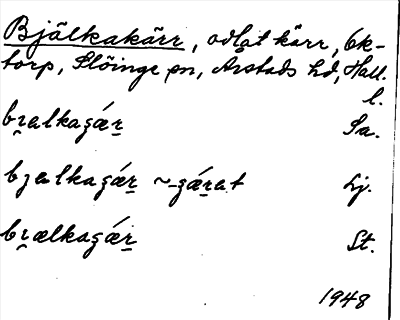 Bjälkakärr, odlat kärr, Ek-
torp, Slöinge sn, Årstads hd, Hall.
l.
bɪ̯alkaʒǽr̠ Sa.
bɪalkaʒǽr̠ ~ -ʒǽr̠et Lj.
bɪ̯ælkaʒǽr̠ St.
1948